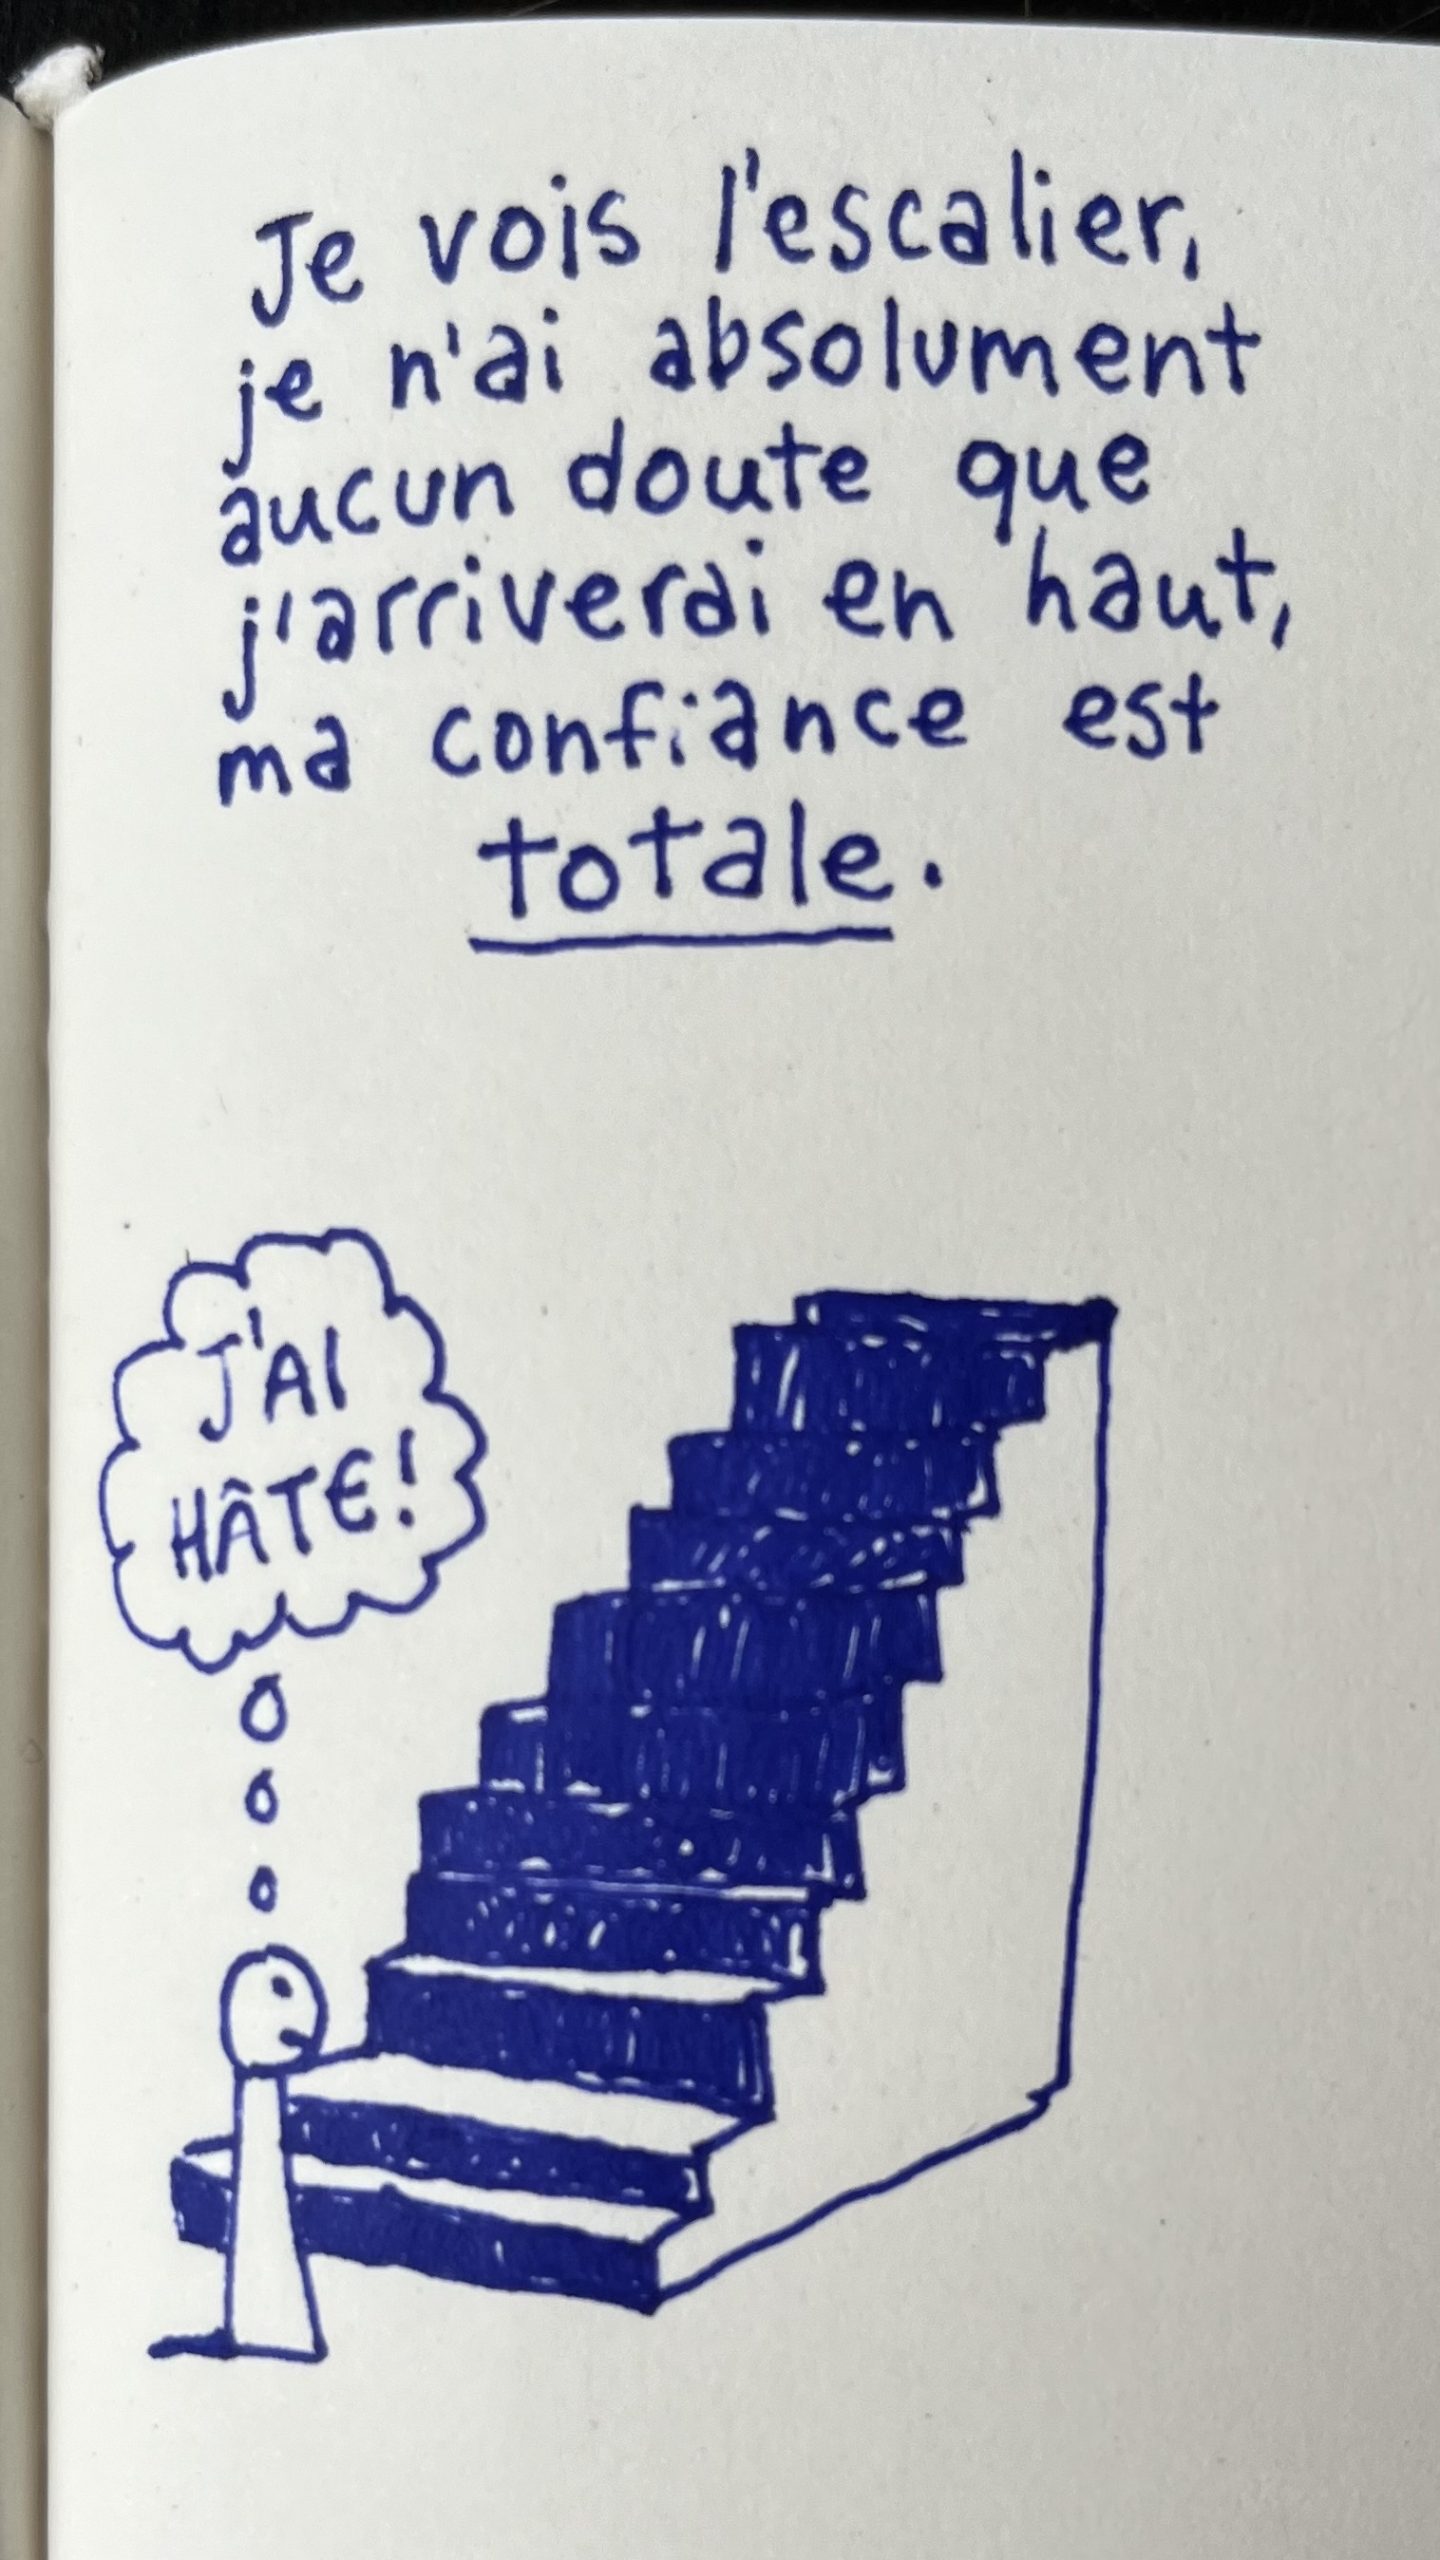 Je vois l'escalier,
je n'ai absolument
aucun doute que
j'arriverai en haut,
ma confiance est
totale.
J'AI
HÂTE!